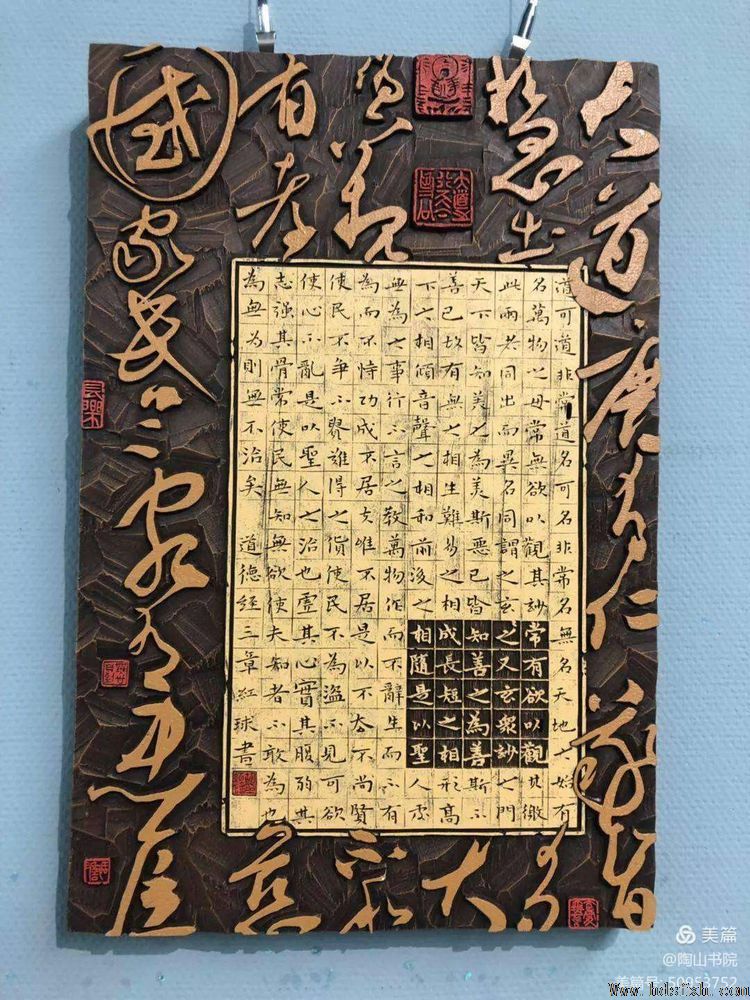 大道廢有仁義智
慧出有
大
偽親不和
有孝慈
國家昏亂有忠臣
道可道非常道名可名非常名無名天地之始有
名萬物之母常無欲以觀其妙常有欲以觀其徼
此兩者同出而異名同謂之玄之又玄衆妙之門
天下皆知美之為美斯惡已皆知善之為善斯不
善已故有無之相生難易之相成長短之相形高
下之相傾音聲之相和前後之相隨是以聖人處
無為之事行不言之教萬物作而不辭生而不有
為而不恃功成不居夫唯不居是以不去不尚賢
使民不爭不貴難得之貨使民不為盜不見可欲
使心不亂是以聖人之治也虛其心實其腹弱其
志强其骨常使民無知無欲使夫知者不敢為也
為無為則無不治矣 道德經三章紅球書
美篇
@陶山书院
美篇号:50953752